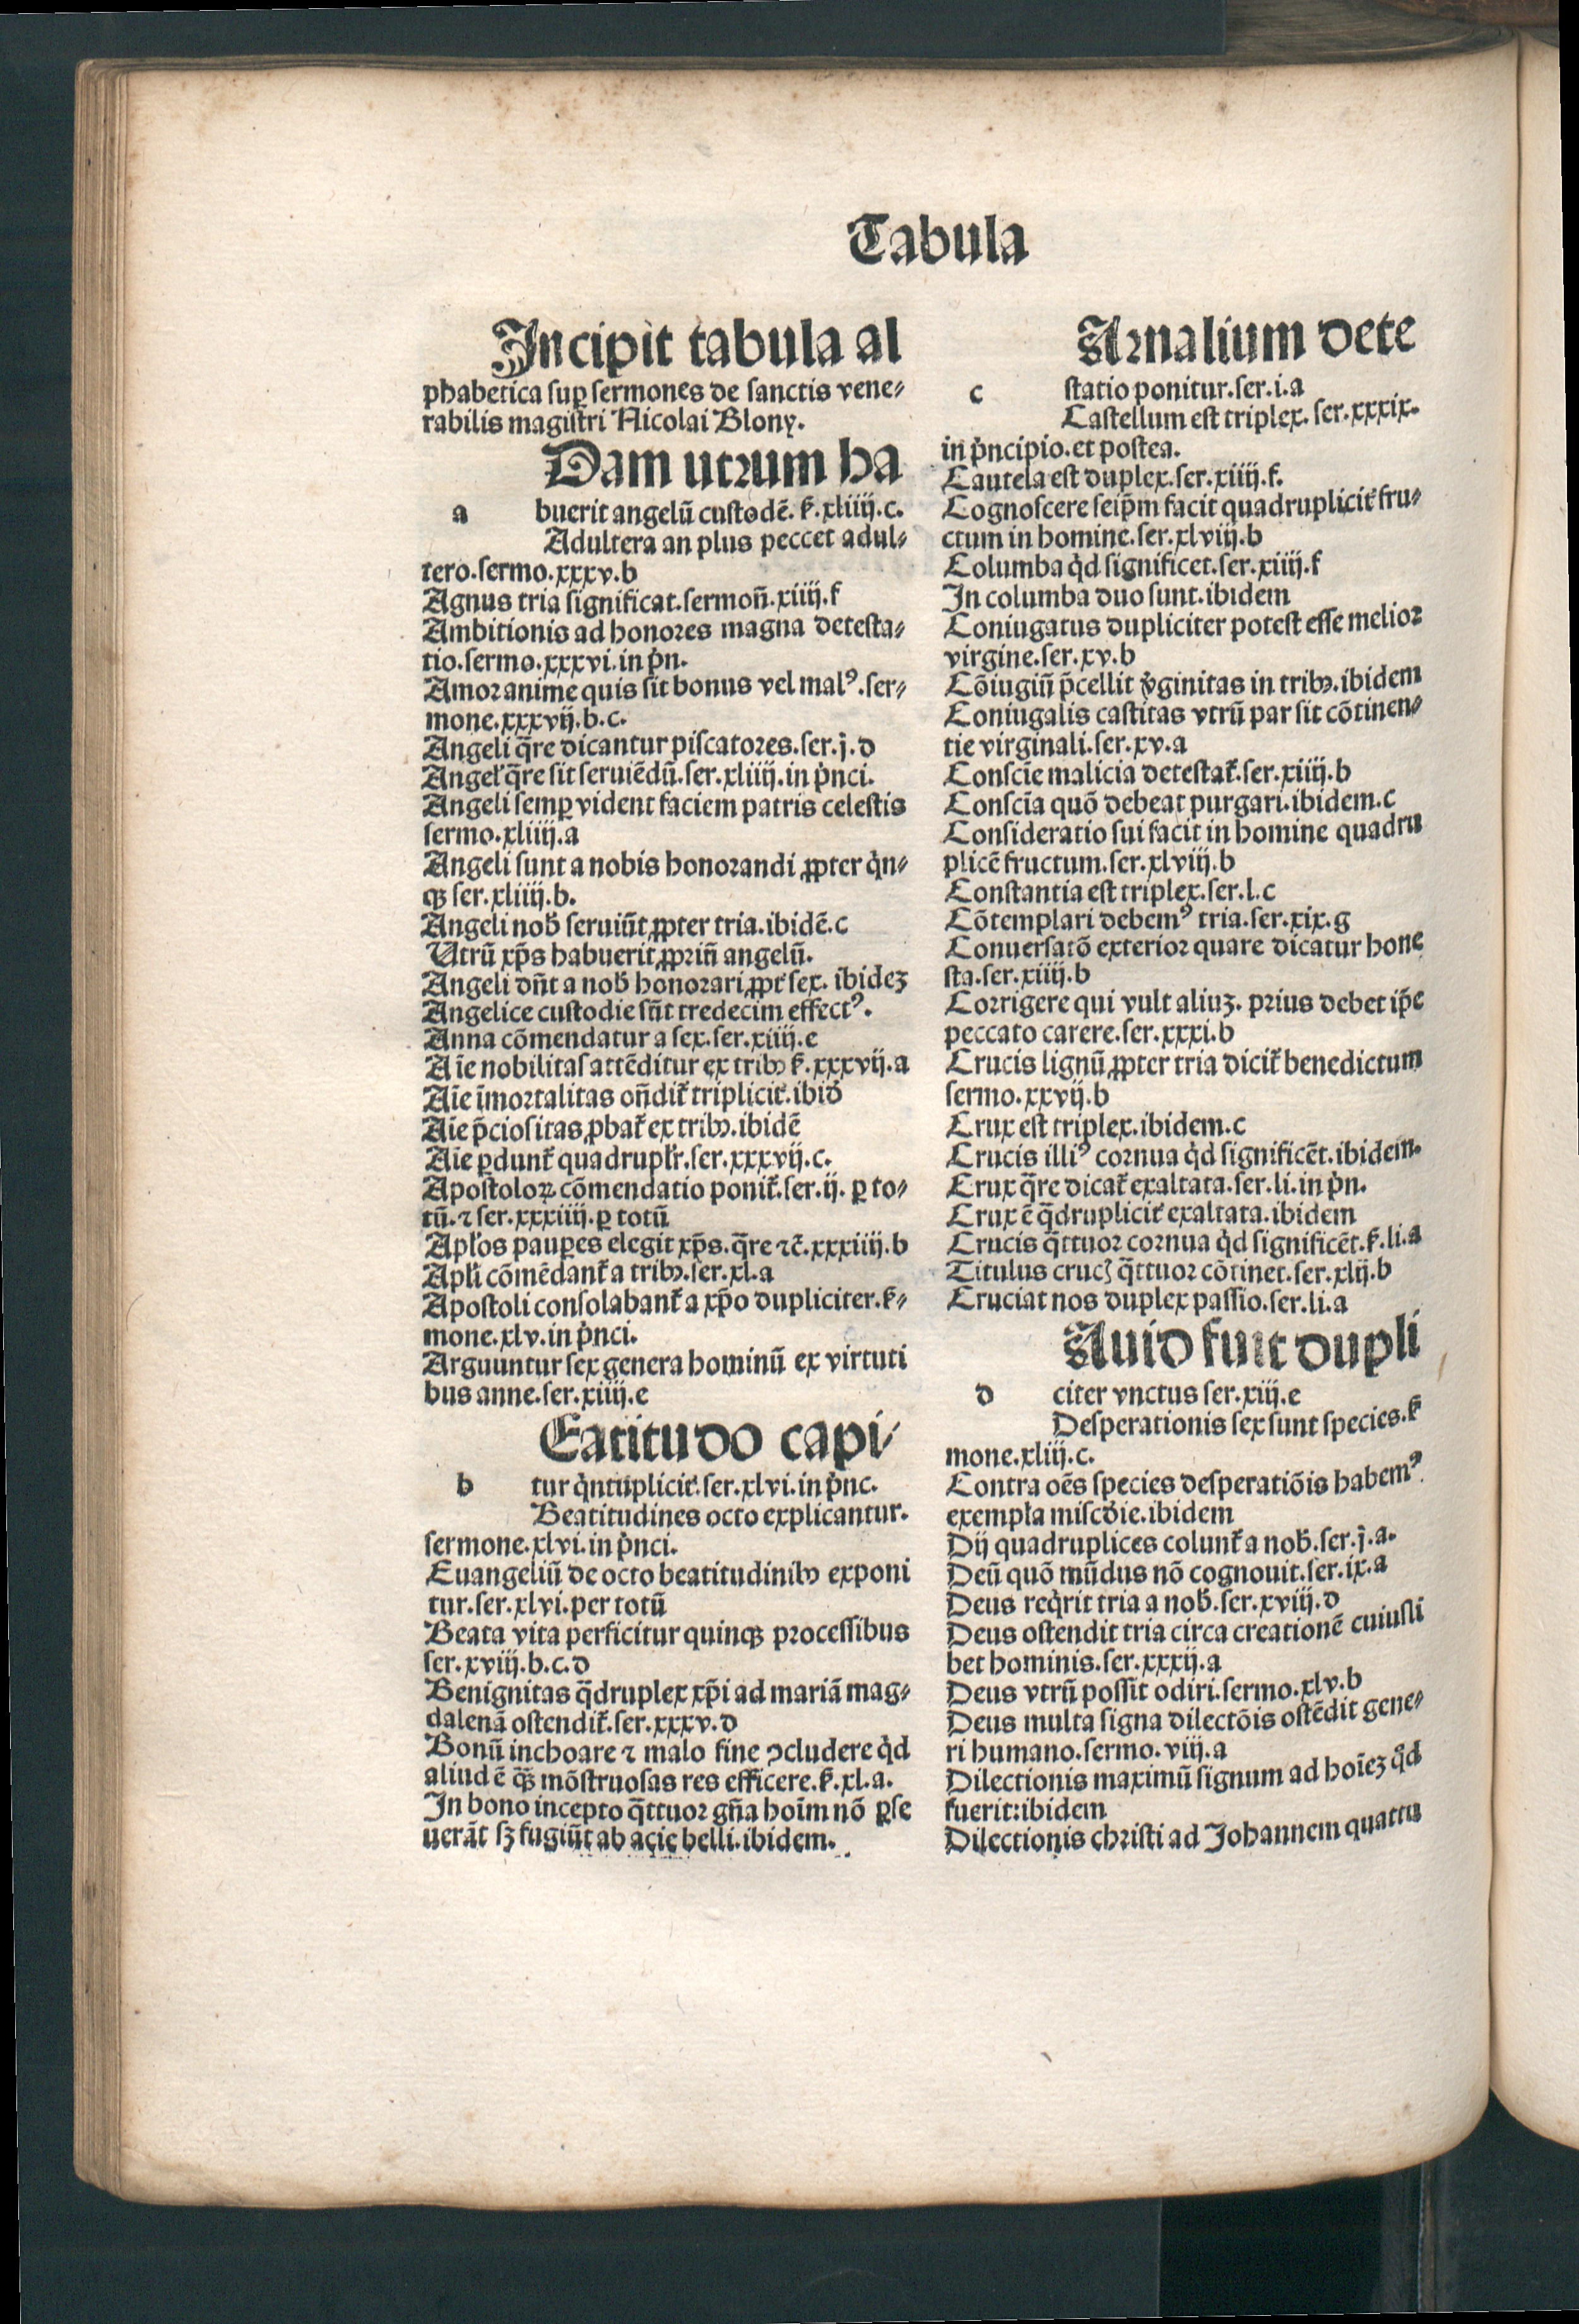 Tabula
Incipit tabula al
phabetica sup̱ sermones de sanctis vene⸗
rabilis magistri Nicolai Blony.
Dam utrum ha
a buerit angelū custodē. ẜ. xliiij.c.
Adultera an plus peccet adul⸗
tero.sermo.xxxv.b
Agnus tria significat.sermoñ.xiiij.f
Ambitionis ad honores magna detesta⸗
tio.sermo.xxxvi.in pͥn.
Amor anime quis sit bonus vel malꝰ.ser⸗
mone.xxxvij.b.c.
Angeli q̄re dicantur piscatores.ser.j.d
Angeľ q̄re sit seruiēdū.ser.xliiij.in pͥnci.
Angeli semꝑ vident faciem patris celestis
sermo.xliiij.a
Angeli sunt a nobis honorandi ꝓpter qͥn⸗
qꝫ ser.xliiij.b.
Angeli nob̓ seruiūt ꝓpter tria.ibidē.c
Utrū xp̄s habuerit ꝓpriū angelū.
Angeli dn̄t a nob̓ honorari ꝓpt̓ sex. ibideꝫ
Angelice custodie sn̄t tredecim effectꝰ.
Anna cōmendatur a sex.ser.xiiij.e
Aīe nobilitas attēditur ex tribꝰ ẜ.xxxvij.a
Aīe īmortalitas on̄dit̉ triplicit̓.ibid̓
Aīe p̄ciositas ꝓbat̉ ex tribꝰ.ibidē
Aīe ꝑdunt̉ quadrupľr.ser.xxxvij.c.
Apostoloꝝ cōmendatio ponit̉.ser.ij. ꝑ to⸗
tū.⁊ ser.xxxiiij.ꝑ totū
Apľos pauꝑes elegit xp̄s.q̄re ⁊c̄.xxxiiij.b
Apľi cōmēdant̉ a tribꝰ.ser.xl.a
Apostoli consolabant̉ a xp̄o dupliciter.ẜ⸗
mone.xlv.in pͥnci.
Arguuntur sex genera hominū ex virtuti
bus anne.ser.xiiij.e
Eatitudo capi⸗
b tur qͥntuplicit̓.ser.xlvi.in pͥnc.
Beatitudines octo explicantur.
sermone.xlvi.in pͥnci.
Euangeliū de octo beatitudinibꝰ exponi
tur.ser.xlvi.per totū
Beata vita perficitur quinqꝫ processibus
ser.xviij.b.c.d
Benignitas q̄druplex xp̄i ad mariā mag⸗
dalenā ostendit̉.ser.xxxv.d
Bonū inchoare ⁊ malo fine ꝯcludere qͥd
aliud ē qꝫ̄ mōstruosas res efficere.ẜ.xl.a.
In bono incepto q̄ttuor gn̄a hoīm nō ꝑse
uerāt sꝫ fugiūt ab acie belli.ibidem.
Arnalium dete
c statio ponitur.ser.i.a
Castellum est triplex. ser.xxxix.
in pͥncipio.et postea.
Cautela est duplex.ser.xiiij.f.
Cognoscere seip̄m facit quadruplicit̓ fru⸗
ctum in homine.ser.xlviij.b
Columba qͥd significet.ser.xiiij.f
In columba duo sunt.ibidem
Coniugatus dupliciter potest esse melior
virgine.ser.xv.b
Cōiugiū p̄cellit vͥginitas in tribꝰ.ibidem
Coniugalis castitas vtrū par sit cōtinen⸗
tie virginali.ser.xv.a
Conscīe malicia detestat̉.ser.xiiij.b
Conscīa quō debeat purgari.ibidem.c
Consideratio sui facit in homine quadru
plicē fructum.ser.xlviij.b
Constantia est triplex.ser.l.c
Cōtemplari debemꝰ tria.ser.xix.g
Conuersatō exterior quare dicatur hone
sta.ser.xiiij.b
Corrigere qui vult aliuꝫ. prius debet ip̄e
peccato carere.ser.xxxi.b
Crucis lignū ꝓpter tria dicit̉ benedictum
sermo.xxvij.b
Crux est triplex.ibidem.c
Crucis illiꝰ cornua qͥd significēt.ibidem.
Crux q̄re dicat̉ exaltata.ser.li.in pͥn.
Crux ē q̄druplicit̓ exaltata.ibidem
Crucis q̄ttuor cornua qͥd significēt.ẜ.li.a
Titulus crucꝭ q̄ttuor cōtinet.ser.xlij.b
Cruciat nos duplex passio.ser.li.a
Auid fuit dupli
d citer vnctus ser.xiij.e
Desperationis sex sunt species.ẜ
mone.xliij.c.
Contra oēs species desperatiōis habemꝰ
exempľa miscd̓ie.ibidem
Dij quadruplices colunt̉ a nob̓.ser.j.a.
Deū quō mūdus nō cognouit.ser.ix.a
Deus reqͥrit tria a nob̓.ser.xviij.d
Deus ostendit tria circa creationē cuiusli
bet hominis.ser.xxxij.a
Deus vtrū possit odiri.sermo.xlv.b
Deus multa signa dilectōis ostēdit gene⸗
ri humano.sermo.viij.a
Dilectionis maximū signum ad hoīeꝫ qͥd
fuerit:ibidem
Dilectionis christi ad Johannem quattu